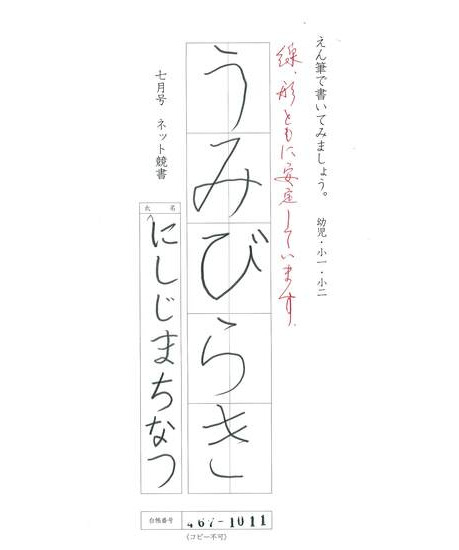 えん筆で書いてみましょう。 幼児・小一・小二
線、形ともに安定しています。
うみびらき
七月号 ネット競書
氏名
にしじまちなつ
台帳番号 467-1011
(コピー不可)